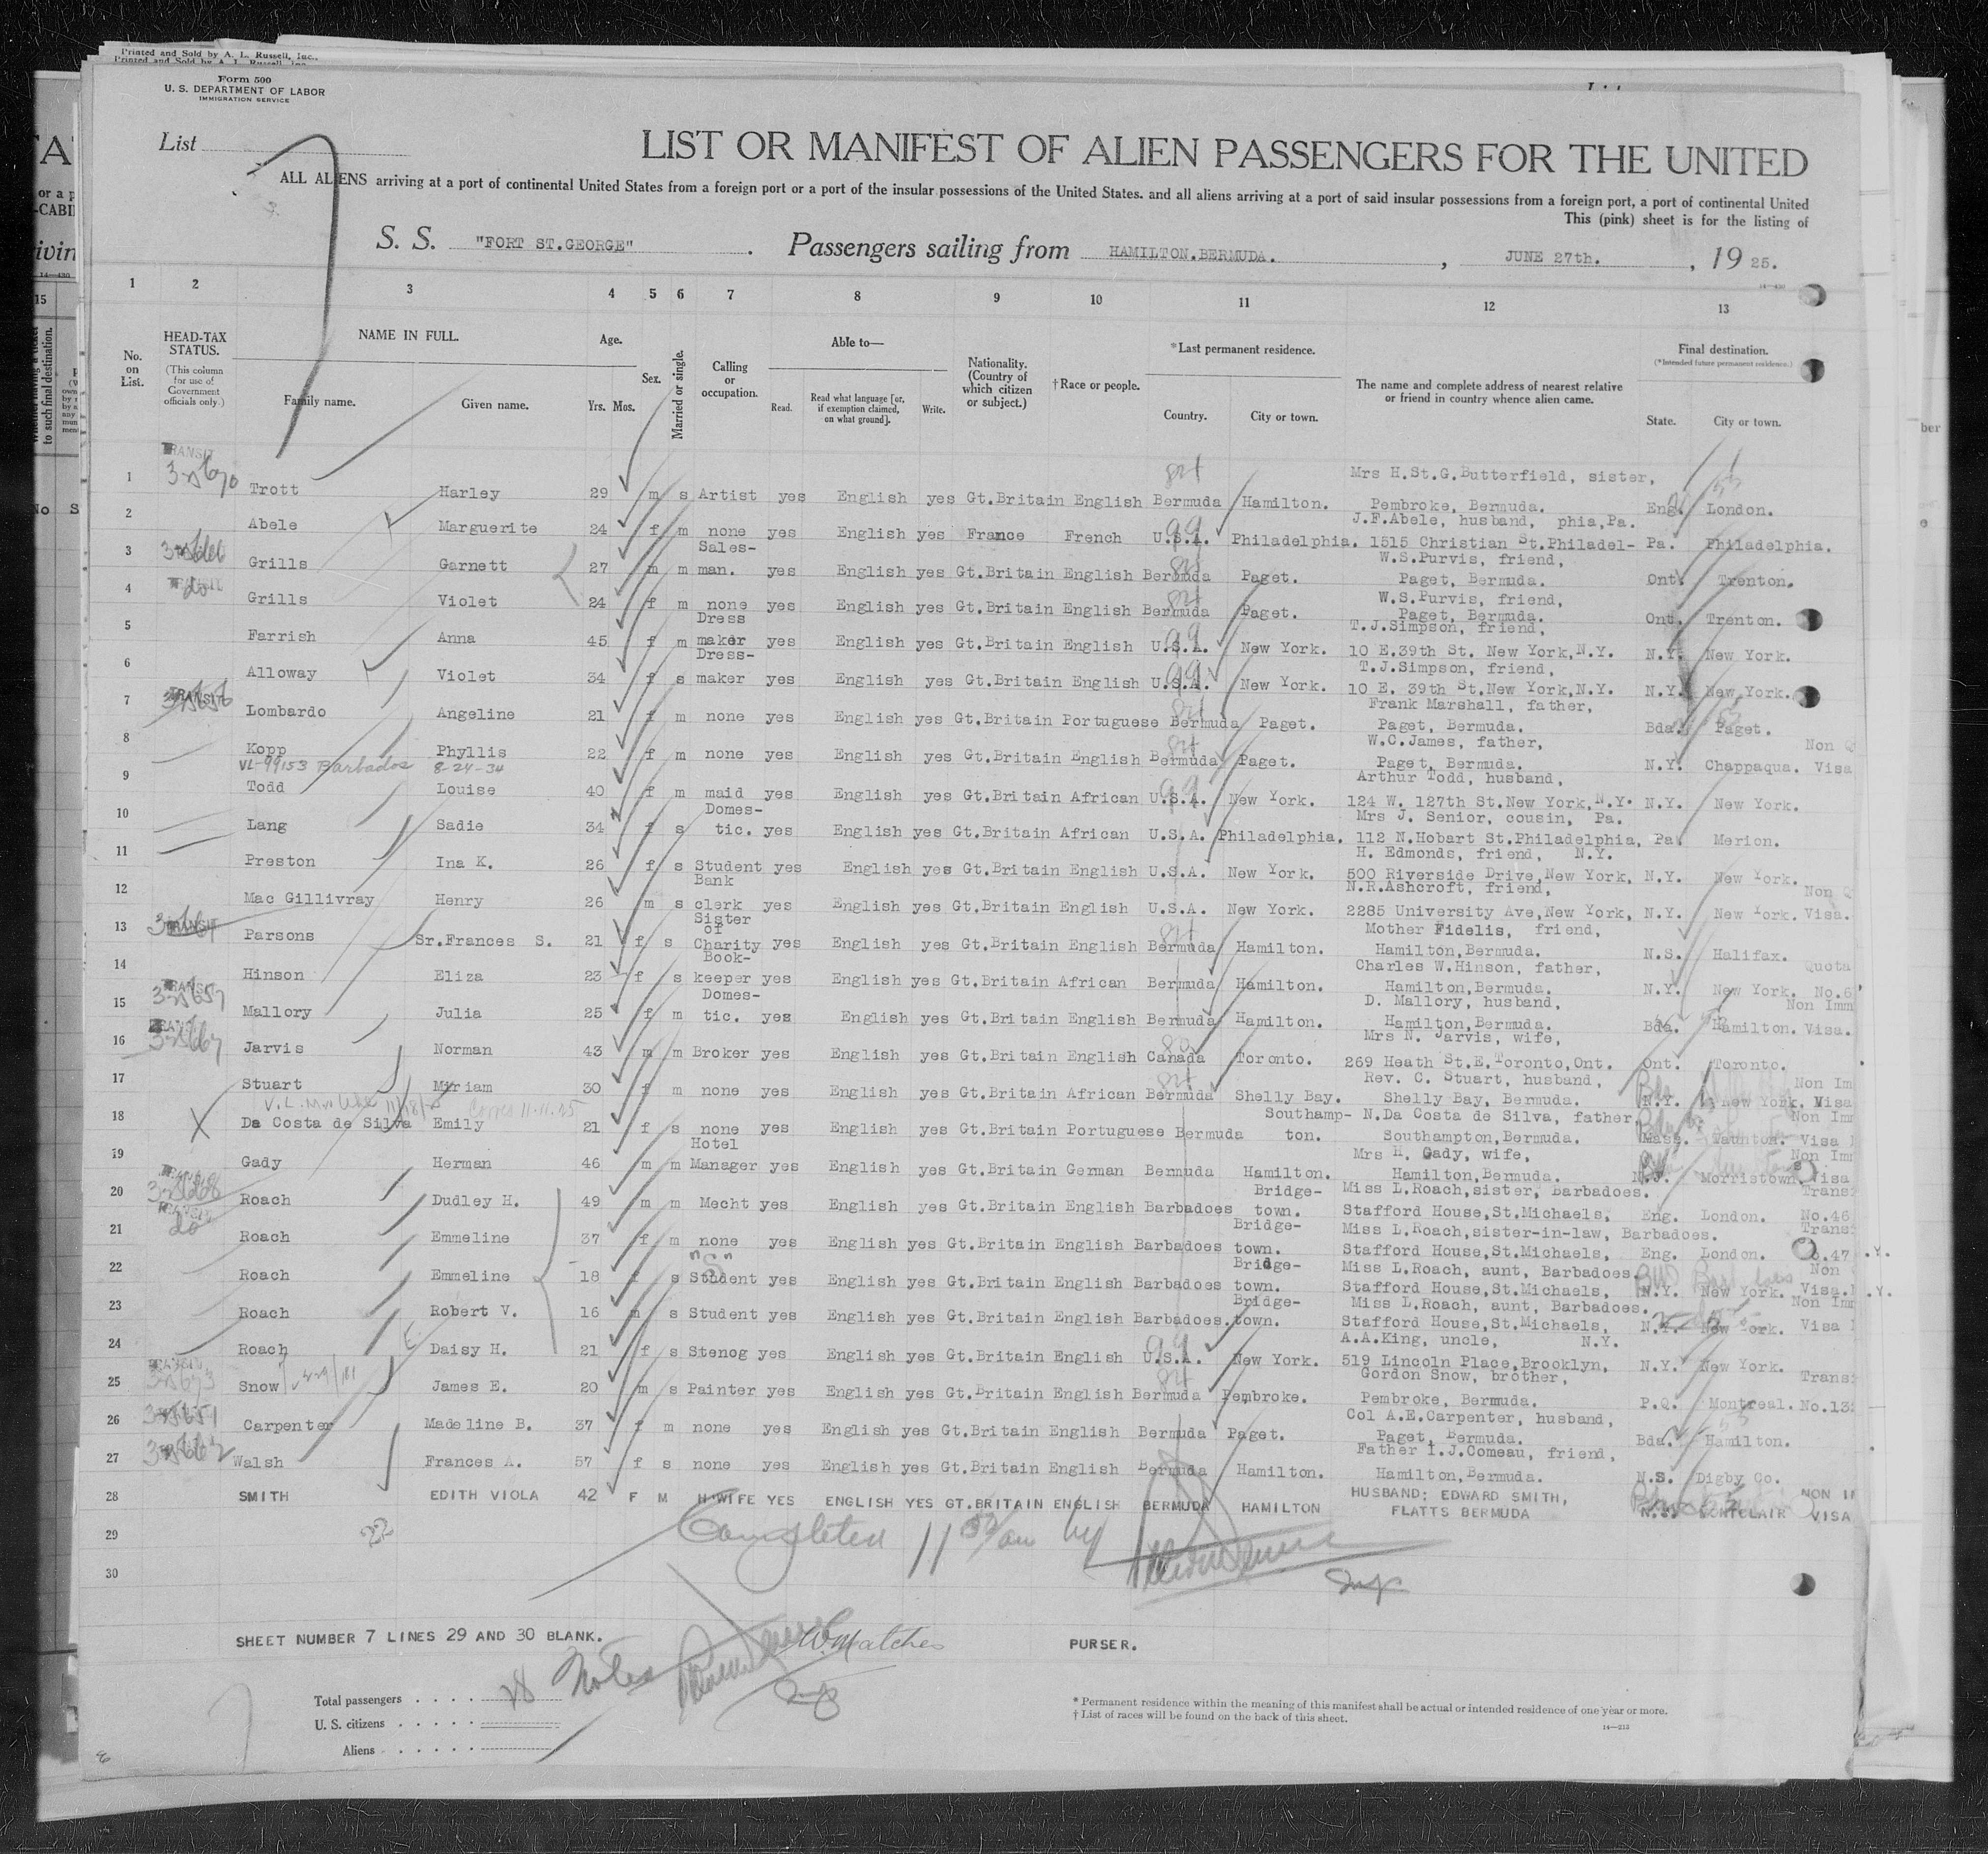 Printed and Sold by A. L. Russell, Inc.,
Form 500
U. S. DEPARTMENT OF LABOR
IMMIGRATION SERVICE
List
LIST OR MANIFEST OF ALIEN PASSENGERS FOR THE UNITED
ALL ALIENS arriving at a port of continental United States from a foreign port or a port of the insular possessions of the United States. and all aliens arriving at a port of said insular possessions from a foreign port, a port of continental United
This (pink) sheet is for the listing of
S. S. "FORT ST.GEORGE" . Passengers sailing from HAMILTON.BERMUDA. , JUNE 27th. , 19 25.
1 2 3 4 5 6 7 8 9 10 11 12 13
No. on List. HEAD-TAX STATUS. (This column for use of Government officials only.) NAME IN FULL. Family name. Given name. Age. Yrs. Mos. Sex. Married or single. Calling or occupation. Able to— Read. Read what language [or, if exemption claimed, on what ground]. Write. Nationality. (Country of which citizen or subject.) †Race or people. *Last permanent residence. Country. City or town. The name and complete address of nearest relative or friend in country whence alien came. Final destination. (*Intended future permanent residence.) State. City or town.
Mrs H.St.G.Butterfield, sister,
1 Trott Harley 29 m s Artist yes English yes Gt.Britain English Bermuda Hamilton. Pembroke, Bermuda. Eng. London.
J.F.Abele, husband, phia,Pa.
2 Abele Marguerite 24 f m none yes English yes France French U.S.A. Philadelphia. 1515 Christian St.Philadel- Pa. Philadelphia.
Sales- W.S.Purvis, friend,
3 Grills Garnett 27 m m man. yes English yes Gt.Britain English Bermuda Paget. Paget, Bermuda. Ont. Trenton.
W.S.Purvis, friend,
4 Grills Violet 24 f m none yes English yes Gt.Britain English Bermuda Paget. Paget, Bermuda. Ont. Trenton.
Dress T.J.Simpson, friend,
5 Farrish Anna 45 f m maker yes English yes Gt.Britain English U.S.A. New York. 10 E.39th St. New York,N.Y. N.Y. New York.
Dress- T.J.Simpson, friend,
6 Alloway Violet 34 f s maker yes English yes Gt.Britain English U.S.A. New York. 10 E. 39th St.New York,N.Y. N.Y. New York.
Frank Marshall, father,
7 Lombardo Angeline 21 f m none yes English yes Gt.Britain Portuguese Bermuda Paget. Paget, Bermuda. Bda. Paget.
W.C.James, father, Non Q
8 Kopp Phyllis 22 f m none yes English yes Gt.Britain English Bermuda Paget. Paget, Bermuda. N.Y. Chappaqua. Visa
VL-99153 Barbados 8-24-34 Arthur Todd, husband,
9 Todd Louise 40 f m maid yes English yes Gt.Britain African U.S.A. New York. 124 W. 127th St.New York,N.Y. N.Y. New York.
Domes- Mrs J. Senior, cousin, Pa.
10 Lang Sadie 34 f s tic. yes English yes Gt.Britain African U.S.A. Philadelphia. 112 N.Hobart St.Philadelphia, Pa. Merion.
H. Edmonds, friend, N.Y.
11 Preston Ina K. 26 f s Student yes English yes Gt.Britain English U.S.A. New York. 500 Riverside Drive,New York, N.Y. New York.
Bank N.R.Ashcroft, friend, Non Q
12 Mac Gillivray Henry 26 m s clerk yes English yes Gt.Britain English U.S.A. New York. 2285 University Ave,New York, N.Y. New York. Visa.
Sister of Mother Fidelis, friend,
13 Parsons Sr.Frances S. 21 f s Charity yes English yes Gt.Britain English Bermuda Hamilton. Hamilton,Bermuda. N.S. Halifax.
Book- Charles W.Hinson, father, Quota
14 Hinson Eliza 23 f s keeper yes English yes Gt.Britain African Bermuda Hamilton. Hamilton,Bermuda. N.Y. New York. No.6
Domes- D. Mallory, husband, Non Imm
15 Mallory Julia 25 f m tic. yes English yes Gt.Britain English Bermuda Hamilton. Hamilton,Bermuda. Bda. Hamilton. Visa.
Mrs N. Jarvis, wife,
16 Jarvis Norman 43 m m Broker yes English yes Gt.Britain English Canada Toronto. 269 Heath St.E.Toronto,Ont. Ont. Toronto.
Rev. C. Stuart, husband, Non Im
17 Stuart Miriam 30 f m none yes English yes Gt.Britain African Bermuda Shelly Bay. Shelly Bay, Bermuda. N.Y. New York. Visa
Southamp- N.Da Costa de Silva, father, Non Imm
18 Da Costa de Silva Emily 21 f s none yes English yes Gt.Britain Portuguese Bermuda ton. Southampton,Bermuda. Mass. Taunton. Visa
Hotel Mrs H. Gady, wife, Non Imm
19 Gady Herman 46 m m Manager yes English yes Gt.Britain German Bermuda Hamilton. Hamilton,Bermuda. N.J. Morristown. Visa
Bridge- Miss L.Roach,sister, Barbadoes. Trans
20 Roach Dudley H. 49 m m Mecht yes English yes Gt.Britain English Barbadoes town. Stafford House,St.Michaels, Eng. London. No.46
Bridge- Miss L.Roach,sister-in-law, Barbadoes. Trans
21 Roach Emmeline 37 f m none yes English yes Gt.Britain English Barbadoes town. Stafford House,St.Michaels, Eng. London. No.47
"S" Bridge- Miss L.Roach, aunt, Barbadoes. Non
22 Roach Emmeline 18 f s Student yes English yes Gt.Britain English Barbadoes town. Stafford House,St.Michaels, N.Y. New York. Visa.
Bridge- Miss L.Roach, aunt, Barbadoes. Non Imm
23 Roach Robert V. 16 m s Student yes English yes Gt.Britain English Barbadoes.town. Stafford House,St.Michaels, N.Y. New York. Visa
A.A.King, uncle, N.Y.
24 Roach Daisy H. 21 f s Stenog yes English yes Gt.Britain English U.S.A. New York. 519 Lincoln Place,Brooklyn, N.Y. New York.
Gordon Snow, brother, Trans
25 Snow James E. 20 m s Painter yes English yes Gt.Britain English Bermuda Pembroke. Pembroke, Bermuda. P.Q. Montreal. No.13
Col A.E.Carpenter, husband,
26 Carpenter Madeline B. 37 f m none yes English yes Gt.Britain English Bermuda Paget. Paget, Bermuda. Bda. Hamilton.
Father I.J.Comeau, friend,
27 Walsh Frances A. 57 f s none yes English yes Gt.Britain English Bermuda Hamilton. Hamilton,Bermuda. N.S. Digby Co.
HUSBAND; EDWARD SMITH, NON
28 SMITH EDITH VIOLA 42 F M H'WIFE YES ENGLISH YES GT.BRITAIN ENGLISH BERMUDA HAMILTON FLATTS BERMUDA N.J. MONTCLAIR VISA
29 22 Completed 11 am by
30 Insp
SHEET NUMBER 7 LINES 29 AND 30 BLANK. PURSER.
Total passengers 28
U. S. citizens
Aliens
* Permanent residence within the meaning of this manifest shall be actual or intended residence of one year or more.
† List of races will be found on the back of this sheet.
14—213